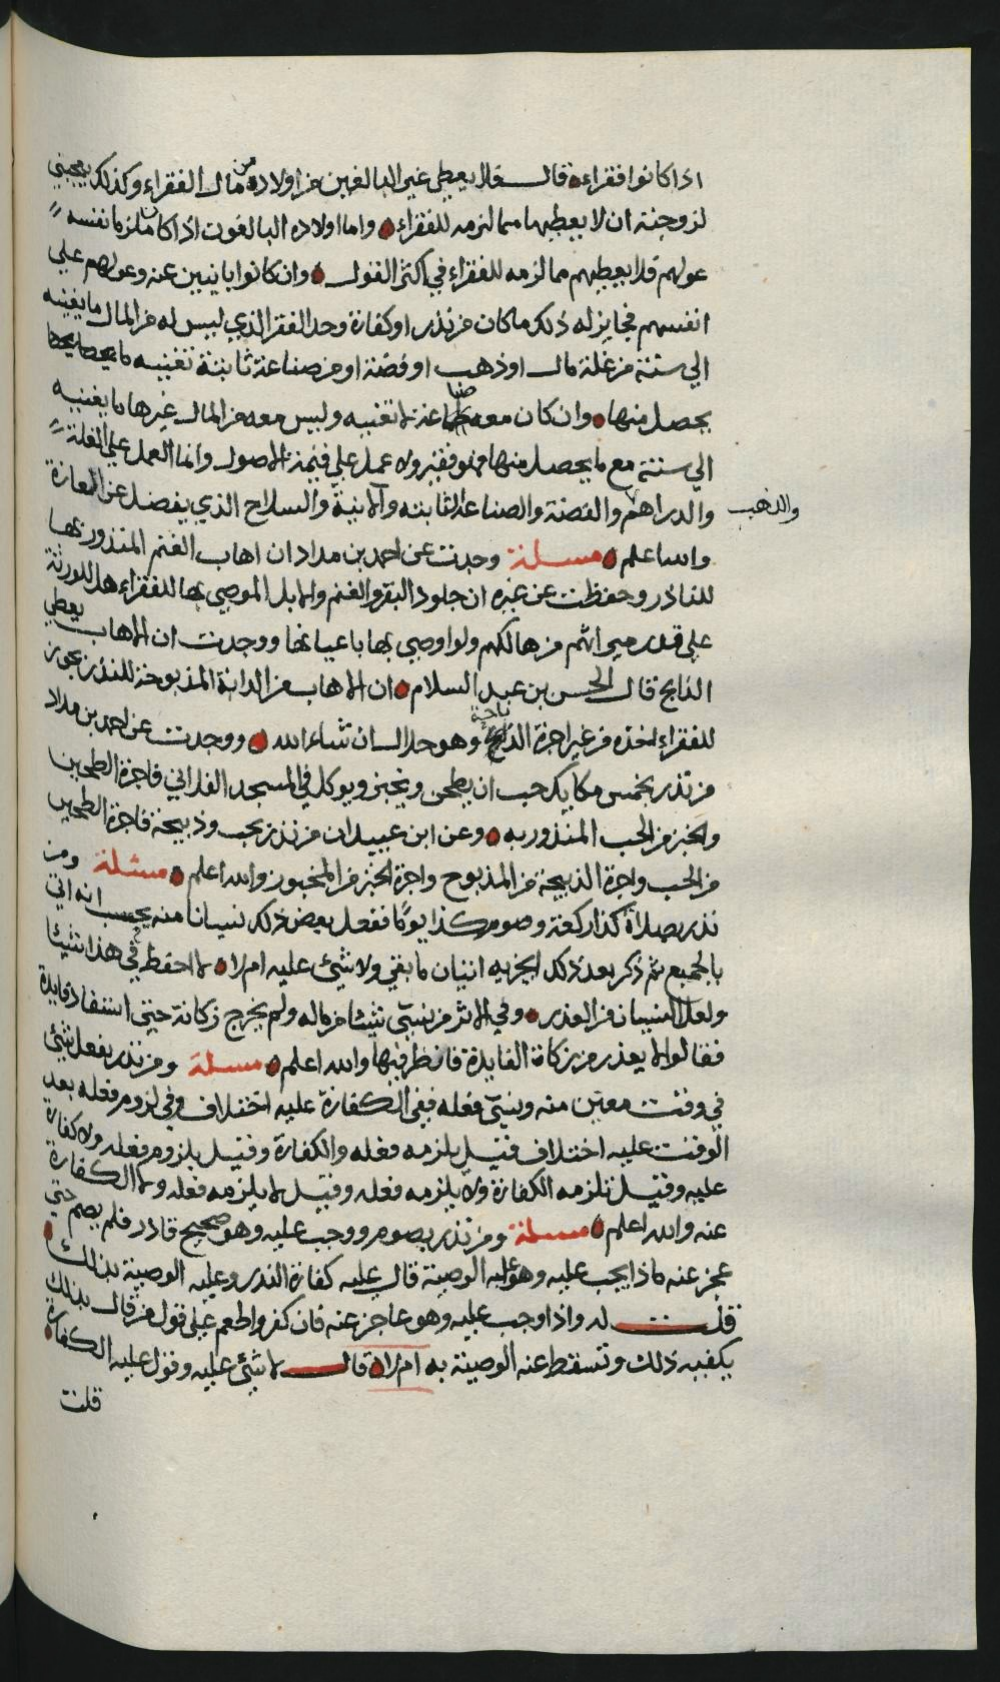 اذا كانوا فقراء قال فلا يعطي غير البالغين من اولاده من مال الفقراء وكذلك يعجبني
لزوجته ان لا يعطيها مما لزمه للفقراء واما اولاده البالغون اذا كان ملزما نفسه
عولهم فلا يعطيهم مما لزمه للفقراء في اكثر القول وان كانوا بايبين عنه وعولهم علي
انفسهم فجايز له ذلك ما كان من نذر او كفارة وحد الفقر الذي ليس له من المال ما يغنيه
الي سنة من غلة مال او ذهب او فضة او من صناعة ثابتة تغنيه ما
يحصل منها وان كان معه صناعة لا تغنيه وليس معه من المال غيرها ما يغنيه
الي سنة مع ما يحصل منها فهو فقير ولا عمل علي قيمة الاصول وانما العمل علي الغلة
والدراهم والفضة والصناعة الثابته والانية والسلاح الذي يفضل عن المعازة
والذهب
والله اعلم مسئلة وجدت عن احمد بن مداد ان اهاب الغنم المنذور بها
للناذر وحفظت عن غيره ان جلود البقر والغنم والابل الموصي بها للفقراء هل للورثة
علي قدر ميراثهم من هالكهم ولو اوصي بها باعيانها ووجدت ان الاهاب يعطي
الذابح قال الحسن بن عبد السلام ان الاهاب من الدابة المذبوحة للنذر يجوز
للفقراء اخذه من غير اجرة الذابح وهو حلال ان شاء الله ووجدت عن احمد بن مداد
من نذر بخمس مكايك حب ان يطحن ويخبز ويوكل في المسجد الفلاني فاجرة الطحين
والخبز من الحب المنذور به وعن ابن عبيدان من نذر بحب وذبيحة فاجرة الطحين
من الحب واجرة الذبيحة من المذبوح واجرة الخبز من المخبوز والله اعلم مسئلة ومن
نذر بصلاة كذا ركعة وصوم كذا يومًا ففعل بعض ذلك نسيانا منه يحسب انه اتي
بالجميع ثم ذكر بعد ذلك ايجزيه اتيان ما بقي ولا شيئ عليه ام لا لا احفظ في هذا شيئا
ولعل النسيان من العذر وفي الاثر من نسي شيئا من ماله ولم يخرج زكاته حتي استفاد فايدة
فقالوا لا يعذر من زكاة الفايدة فانظر فيها والله اعلم مسئلة ومن نذر بفعل شيئ
في وقت معين منه ونسي فعله ففي الكفارة عليه اختلاف وفي لزوم فعله بعد
الوقت عليه اختلاف فقيل يلزمه فعله والكفارة وقيل بلزوم فعله ولا كفارة
عليه وقيل تلزمه الكفارة ولا يلزمه فعله وقيل لا يلزمه فعله ولا الكفارة
عنه والله اعلم مسئلة ومن نذر بصوم ووجب عليه وهو صحيح قادر فلم يصم حتي
عجز عنه ماذا يجب عليه وهو عليه الوصية قال عليه كفارة النذر وعليه الوصية بذلك
قلت له واذا وجب عليه وهو عاجز عنه فان كفر واطعم علي قول من قال بذلك
يكفيه ذلك وتسقط عنه الوصية به ام لا قال لا شيئ عليه وقول عليه الكفارة
قلت